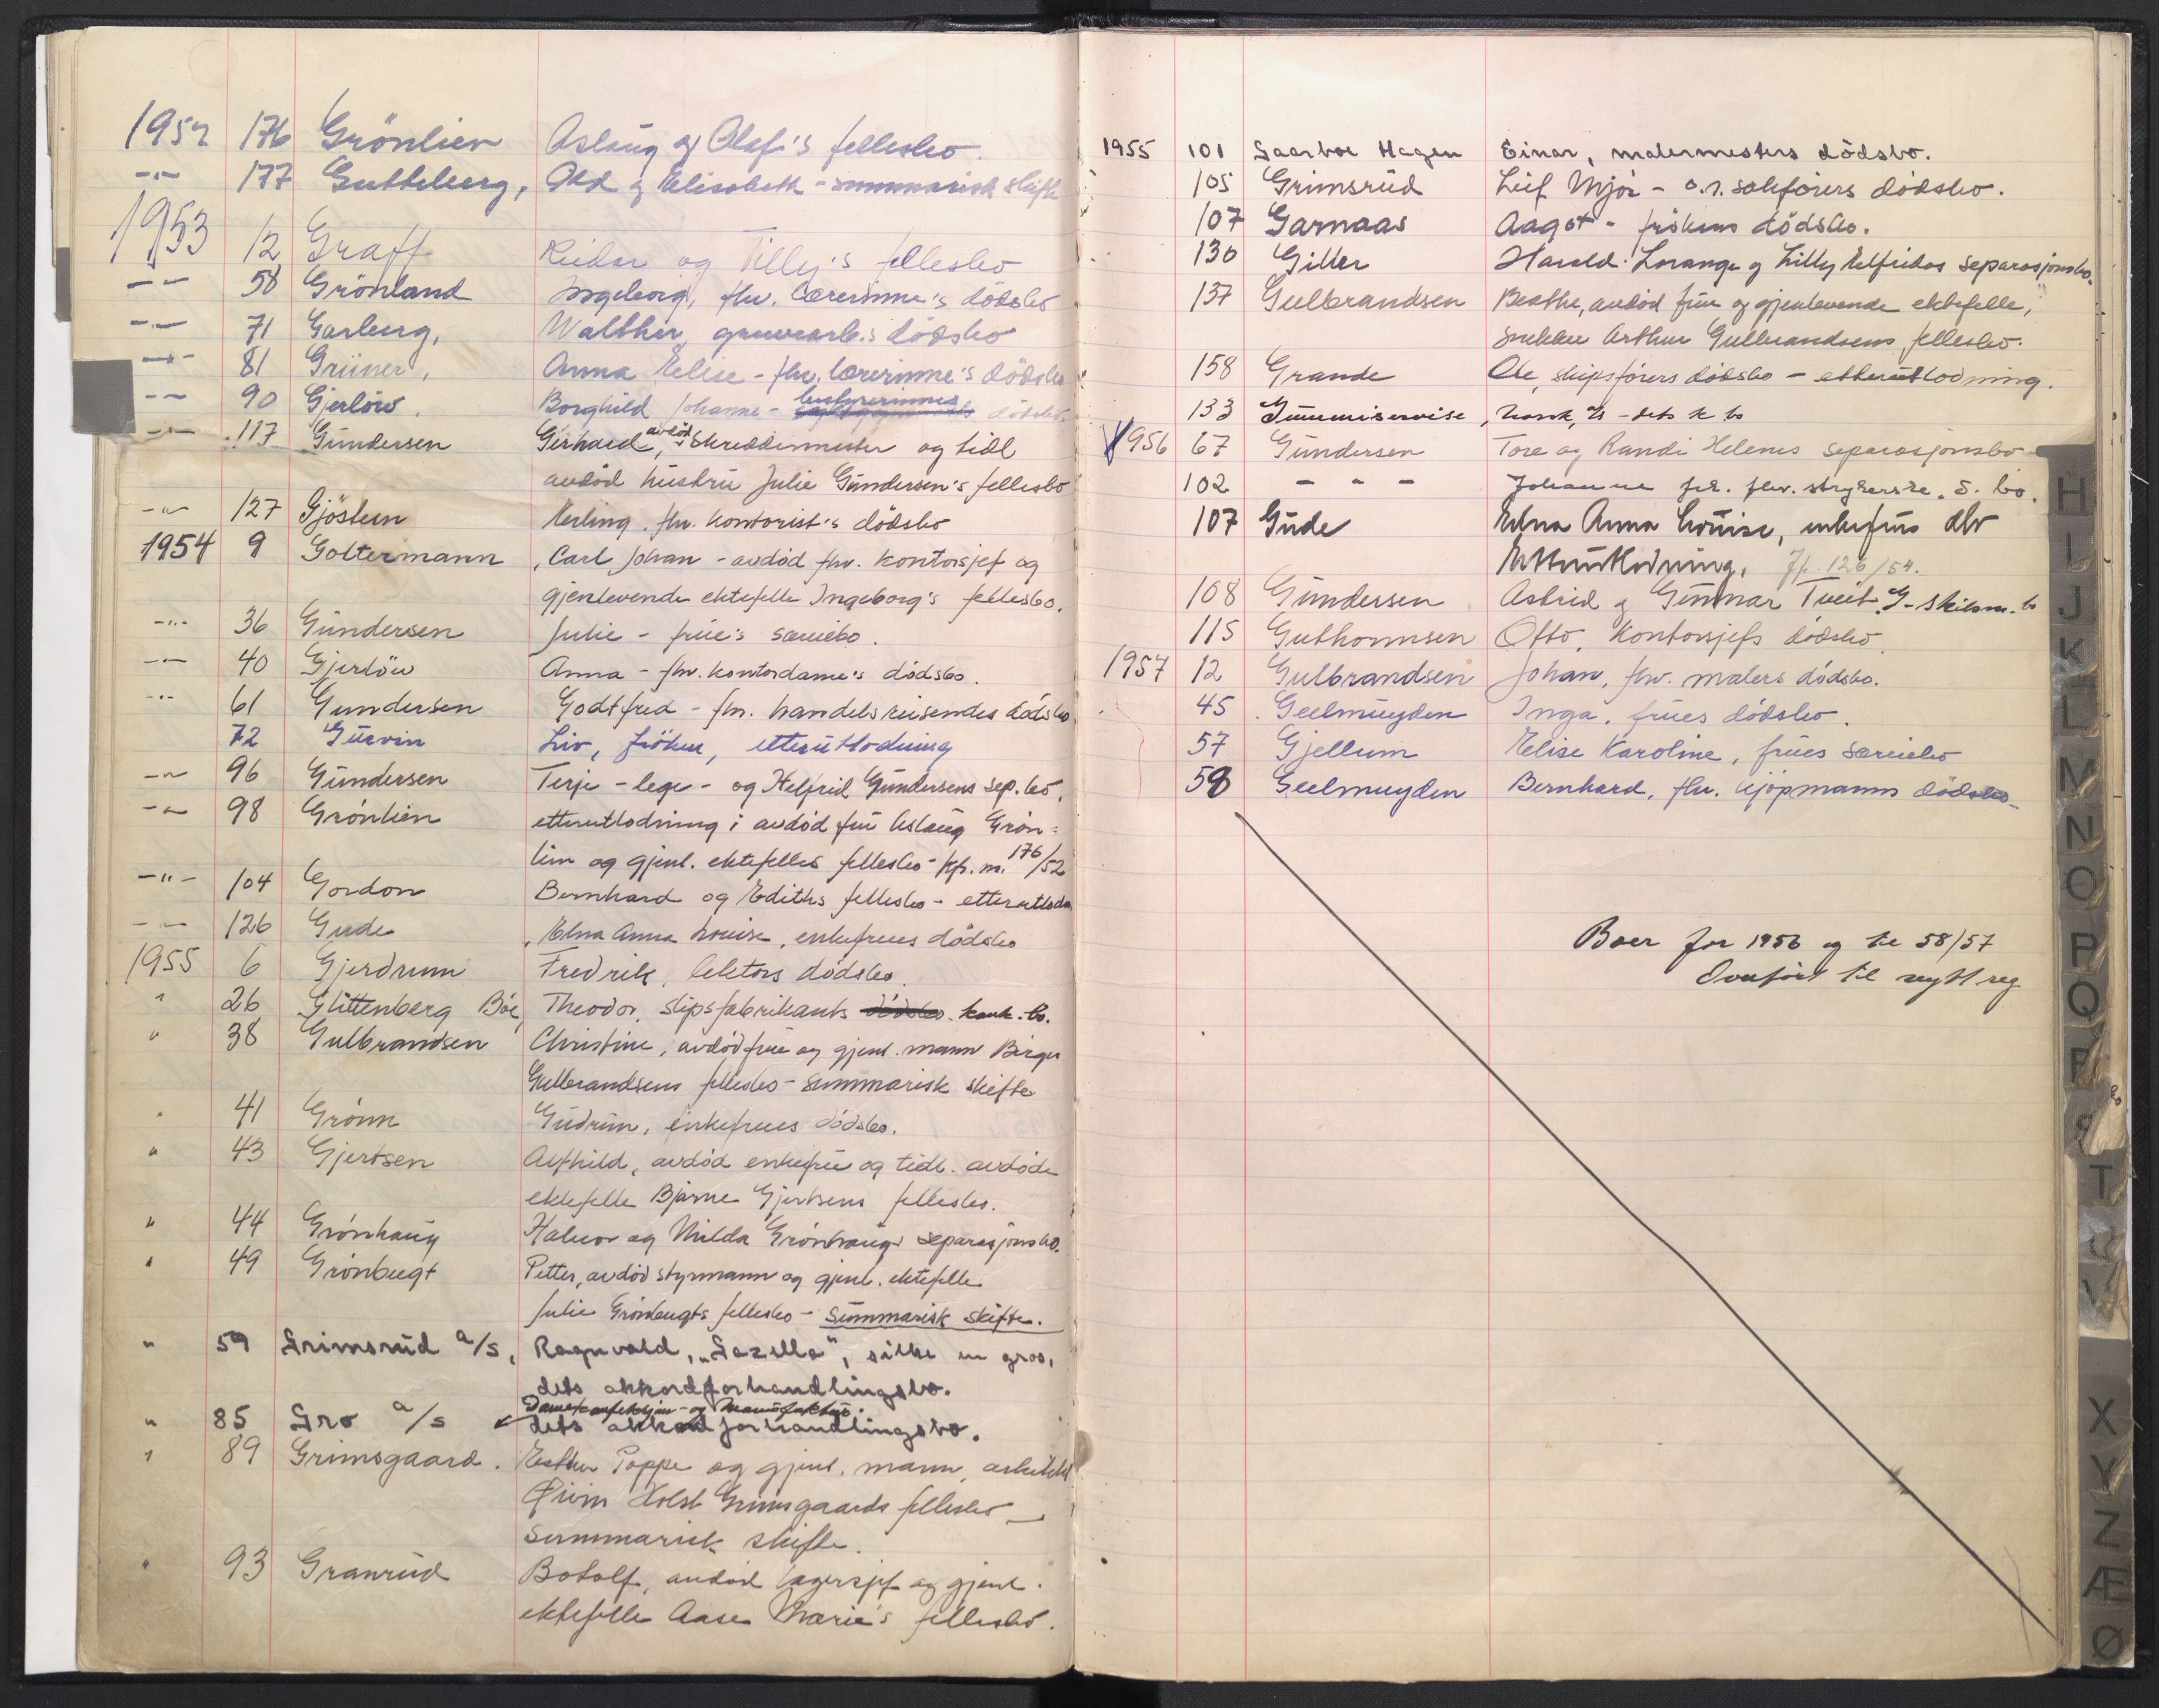 1952 176 Grönlien Aslaug og Olaf's fellesbo.
-"- 177 Guttelberg, Odd og Elisabeth - summarisk skifte
1953 12 Graff Reidar og Tilly's fellesbo
-"- 58 Grönland Ingeborg, fhv. lærerinne's dödsbo
-"- 71 Garberg, Walther, gruvearb.s dödsbo
-"- 81 Grüner, Anna Elise - fhv. lærerinne's dödsbo
-"- 90 Gjerlöw, Borghild Johanne - dödsbo
-"- 117 Gundersen Gerhard, avdöd skreddermester og tidl
avdöd hustru Julie Gundersen's fellesbo
-"- 127 Gjöstein Erling. fhv. kontorist's dödsbo
1954 9 Goltermann, Carl Johan - avdöd fhv. kontorsjef og
gjenlevende ektefelle Ingeborg's fellesbo.
-"- 36 Gundersen Julie - frue's særeiebo.
-"- 40 Gjerlöw Anna - fhv. kontordame's dödsbo.
-"- 61 Gundersen Godtfred - fhv. handelsreisendes dödsbo
72 Gurvin Liv, fröken, etterutlodning
-"- 96 Gundersen Terje - lege - og Helfrid Gundersens sep.bo.
-"- 98 Grönlien etterutlodning i avdöd fru Aslaug Grön=
lien og gjenl. ektefelles fellesbo - kfr. nr. 176/52
-"- 104 Gordon Bernhard og Ediths fellesbo - etterutlodn
-"- 126 Gude, Elna Anna Louise, enkefrues dödsbo
1955 6 Gjerdrum Fredrik, lektors dödsbo.
" 26 Glittenberg Böe, Theodor, slipsfabrikants dödsbo konk.bo.
" 38 Gulbrandsen Christine, avdöd frue og gjenl. mann Birger
Gulbrandsens fellesbo - summarisk skifte
" 41 Grönn Gudrun, enkefrues dödsbo.
" 43 Gjertsen Alfhild, avdöd enkefrue og tidl. avdöde
ektefelle Bjarne Gjertsens fellesbo.
" 44 Grönhaug Halvor og Milda Grönhaugs separasjonsbo.
" 49 Grönbugt Petter, avdöd styrmann og gjenl. ektefelle
Julie Grönbugts fellesbo - summarisk skifte.
" 59 Grimsrud a/s, Ragnvald, "Gazella", silke en gros,
dets akkordforhandlingsbo.
Damekonfeksjon- og Manufaktur.
" 85 Gro a/s dets akkordforhandlingsbo.
" 89 Grimsgaard. Esther Poppe og gjenl. mann, arkitekt
Øivin Holst Grimsgaards fellesbo -
summarisk skifte.
" 93 Granrud Botolf, avdöd lagersjef og gjenl.
ektefelle Aase Marie's fellesbo.
1955 101 Gaarboe Hagen Einar, malermesters dödsbo.
105 Grimsrud Leif Mjör - o.r. sakförers dödsbo.
107 Garnaas Aagot - frökens dödsbo.
130 Giller Harald Lorange og Lilly Elfridas separasjonsbo.
137 Gulbrandsen Beathe, avdöd frue og gjenlevende ektefelle,
snekker Arthur Gulbrandsens fellesbo.
158 Grande Ole, skipsförers dödsbo - etterutlodning.
133 Gummiservise, Norsk, A/S - dets k bo
1956 67 Gundersen Tore og Randi Helenes separasjonsbo
102 - " - Johanne frk. fhv. strykerske. d. bo.
107 Gude Elna Anna Louise, enkefrus dbo
Etterutlodning. Jfr. 126/54.
108 Gundersen Astrid og Gunnar Tveit G- skilsm. bo
115 Guthormsen Otto, kontorsjefs dödsbo.
1957 12 Gulbrandsen Johan, fhv. malers dödsbo.
45 Geelmuyden Inga, frues dödsbo.
57 Gjellum Elise Karoline, frues særeiebo
58 Geelmuyden Bernhard, fhv. kjöpmanns dödsbo
Boer for 1956 og til 58/57
Overfört til nytt reg
H
I
J
K
L
M
N
O
P
Q
R
S
T
U
V
X
Y
Z
Æ
Ø